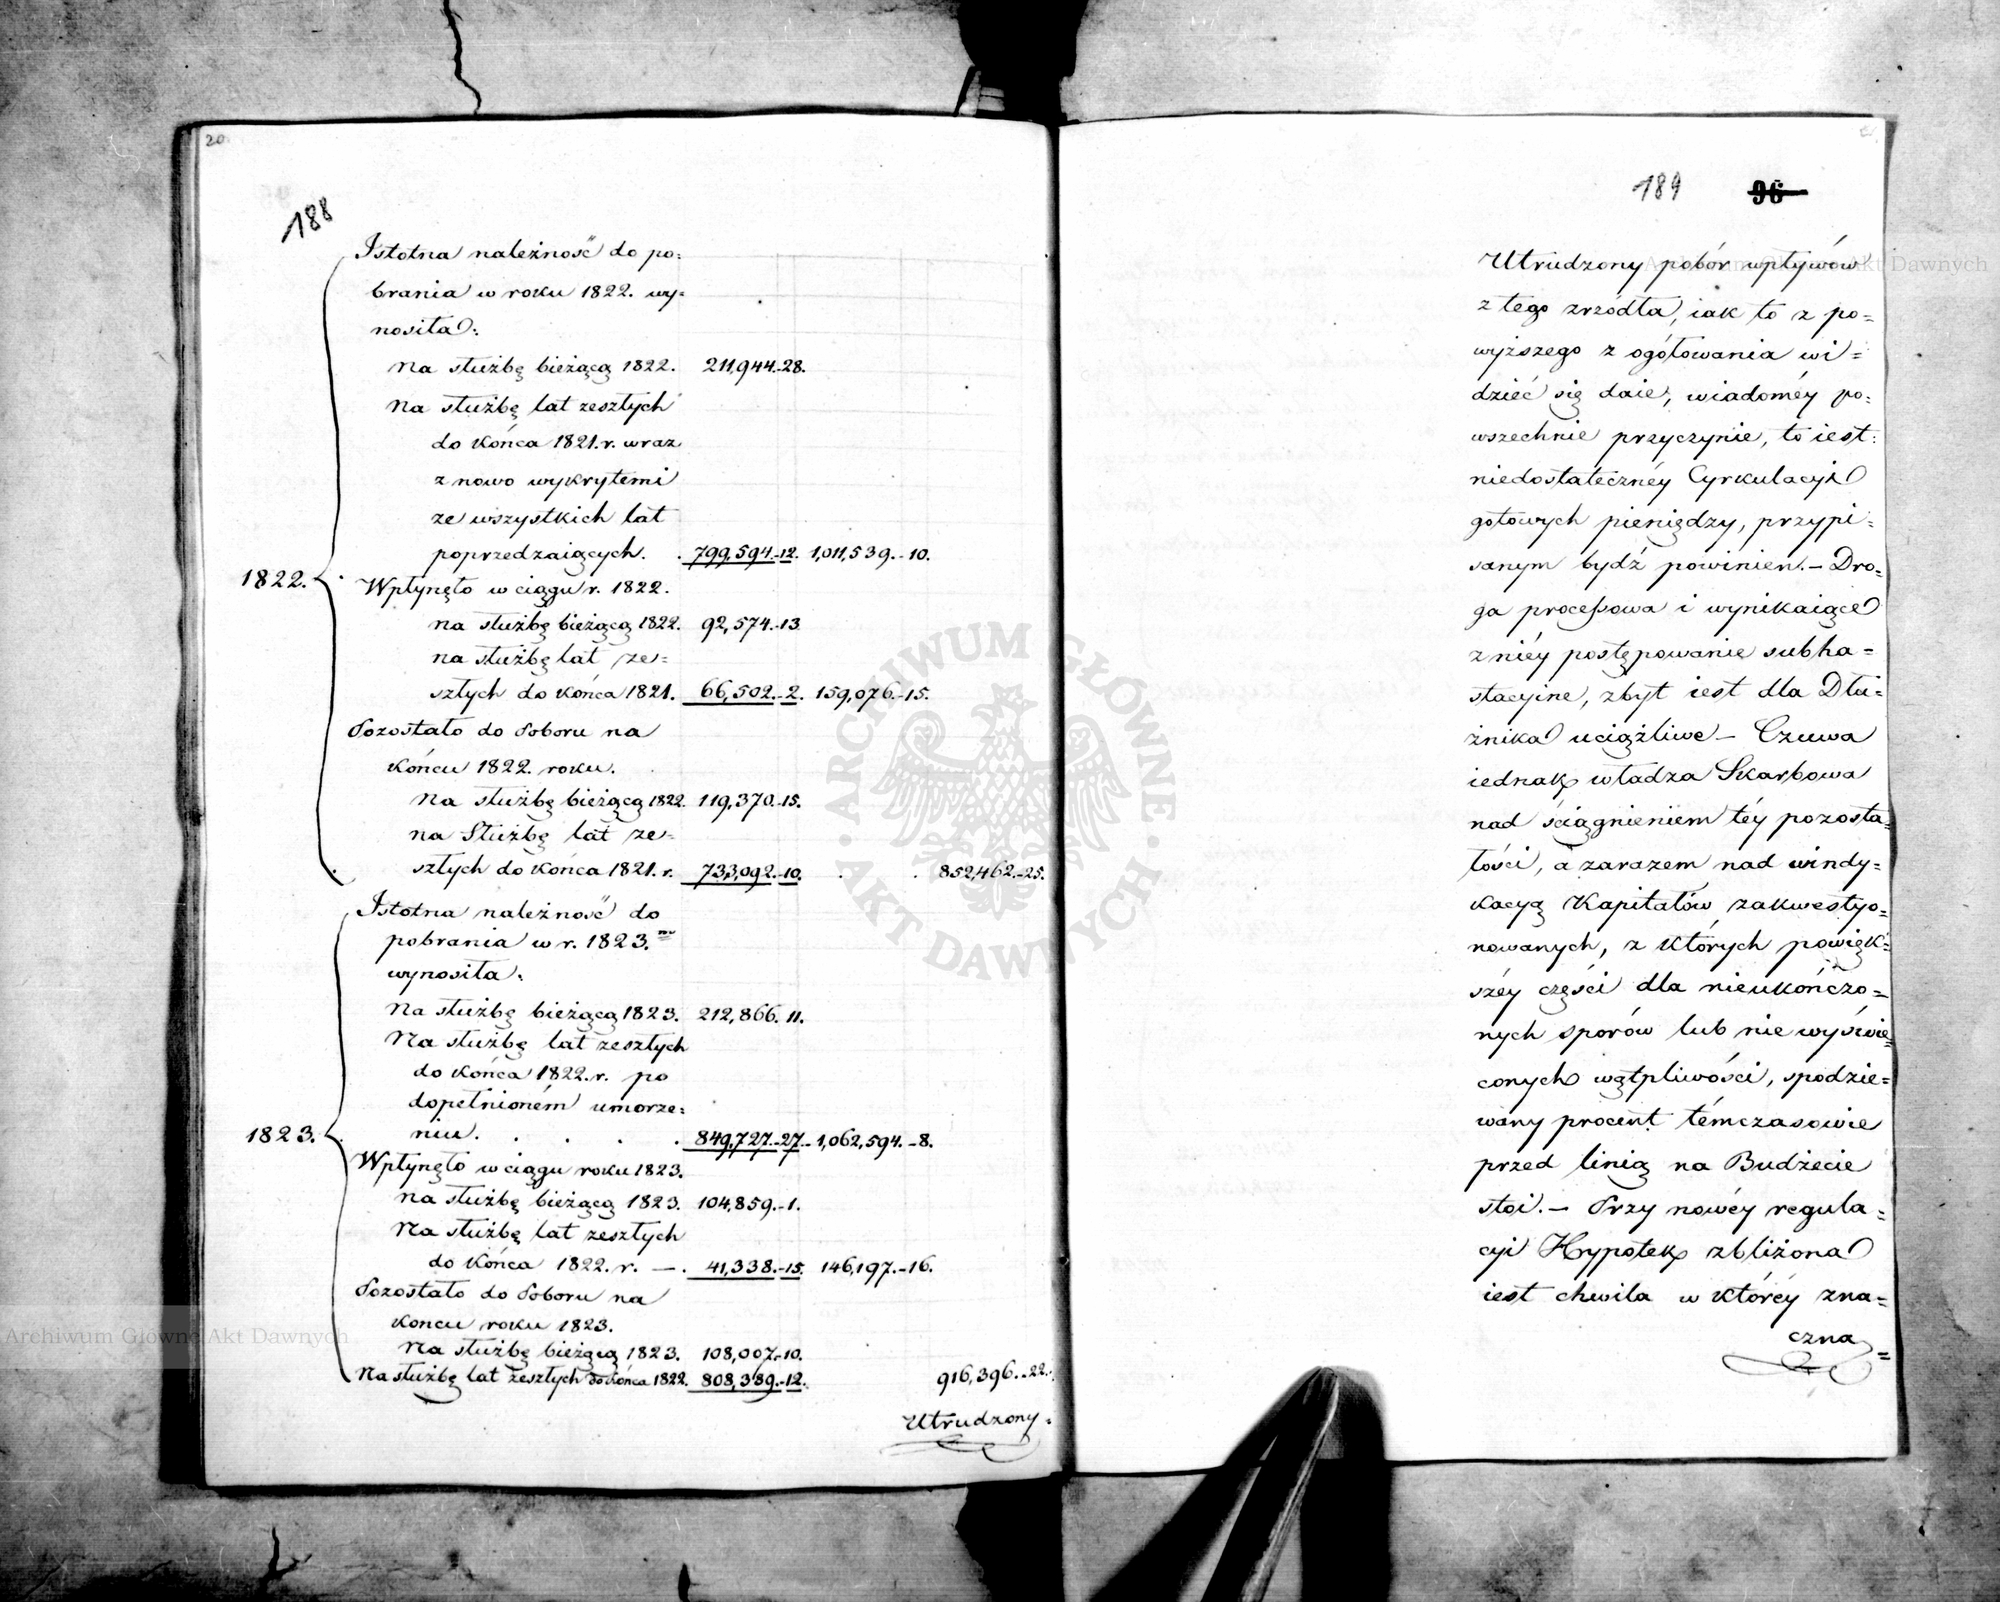 20.
188
Istotna należność do po=
brania w roku 1822. wy=
nosiła:
Na służbę bieżącą 1822. 211,944.-28.
Na służbę lat zeszłych
do końca 1821.r. wraz
z nowo wykrytemi
ze wszystkich lat
poprzedzaiących. . 799,594.-12. 1,011,539.-10.
1822.
Wpłynęło w ciągu r. 1822.
na służbę bieżącą 1822. 92,574.-13
na służbę lat ze=
szłych do końca 1821. 66,502.-2. 159,076.-15.
Pozostało do Poboru na
końcu 1822. roku.
Na służbę bieżącą 1822. 119,370.-15.
na Służbę lat ze=
szłych do końca 1821.r. 733,092.-10. . . 852,462.-25.
Istotna należność do
pobrania w r. 1823.
wynosiła:
Na służbę bieżącą 1823. 212,866. 11.
Na służbę lat zeszłych
do końca 1822.r. po
dopełnioném umorze=
1823.
niu. . . . . 849,727.-27.- 1,062,594.-8.
Wpłynęło w ciągu roku 1823.
na służbę bieżącą 1823. 104,859.-1.
Na służbę lat zeszłych
do końca 1822.r. —. 41,338.-15. 146,197.-16.
Pozostało do Poboru na
końcu roku 1823.
Na służbę bieżącą 1823. 108,007.-10.
Na służbę lat zeszłych do końca 1822. 808,389.-12. 916,396..22.
Utrudzony=
189 96
Utrudzony pobór wpływów
z tego zrzódła, iak to z po=
wyższego z ogółowania wi=
dzieć się daie, wiadoméy po=
wszechnie przyczynie, to iest:
niedostatecznéy Cyrkulacyi
gotowych pieniędzy, przypi=
sanym bydź powinien.- Dro=
ga processowa i wynikaiące
z niéy postępowanie subha=
stacyine, zbyt iest dla Dłu=
żnika uciążliwe - Czuwa
iednak władza Skarbowa
nad ściągnieniem téy pozosta=
łości, a zarazem nad windy=
kacyą Kapitałów zakwestyo=
nowanych, z których powięk=
széy części dla nieukończo=
nych sporów lub nie wyświe=
conych wątpliwości, spodzie=
wany procent témczasowie
przed linią na Budżecie
stoi.- Przy nowéy regula=
cyi Hypotek zbliżona
iest chwila w któréy zna=
czna=
Archiwum Główne Akt Dawnych
ARCHIWUM GŁÓWNE AKT DAWNYCH
Archiwum Główne Akt Dawnych